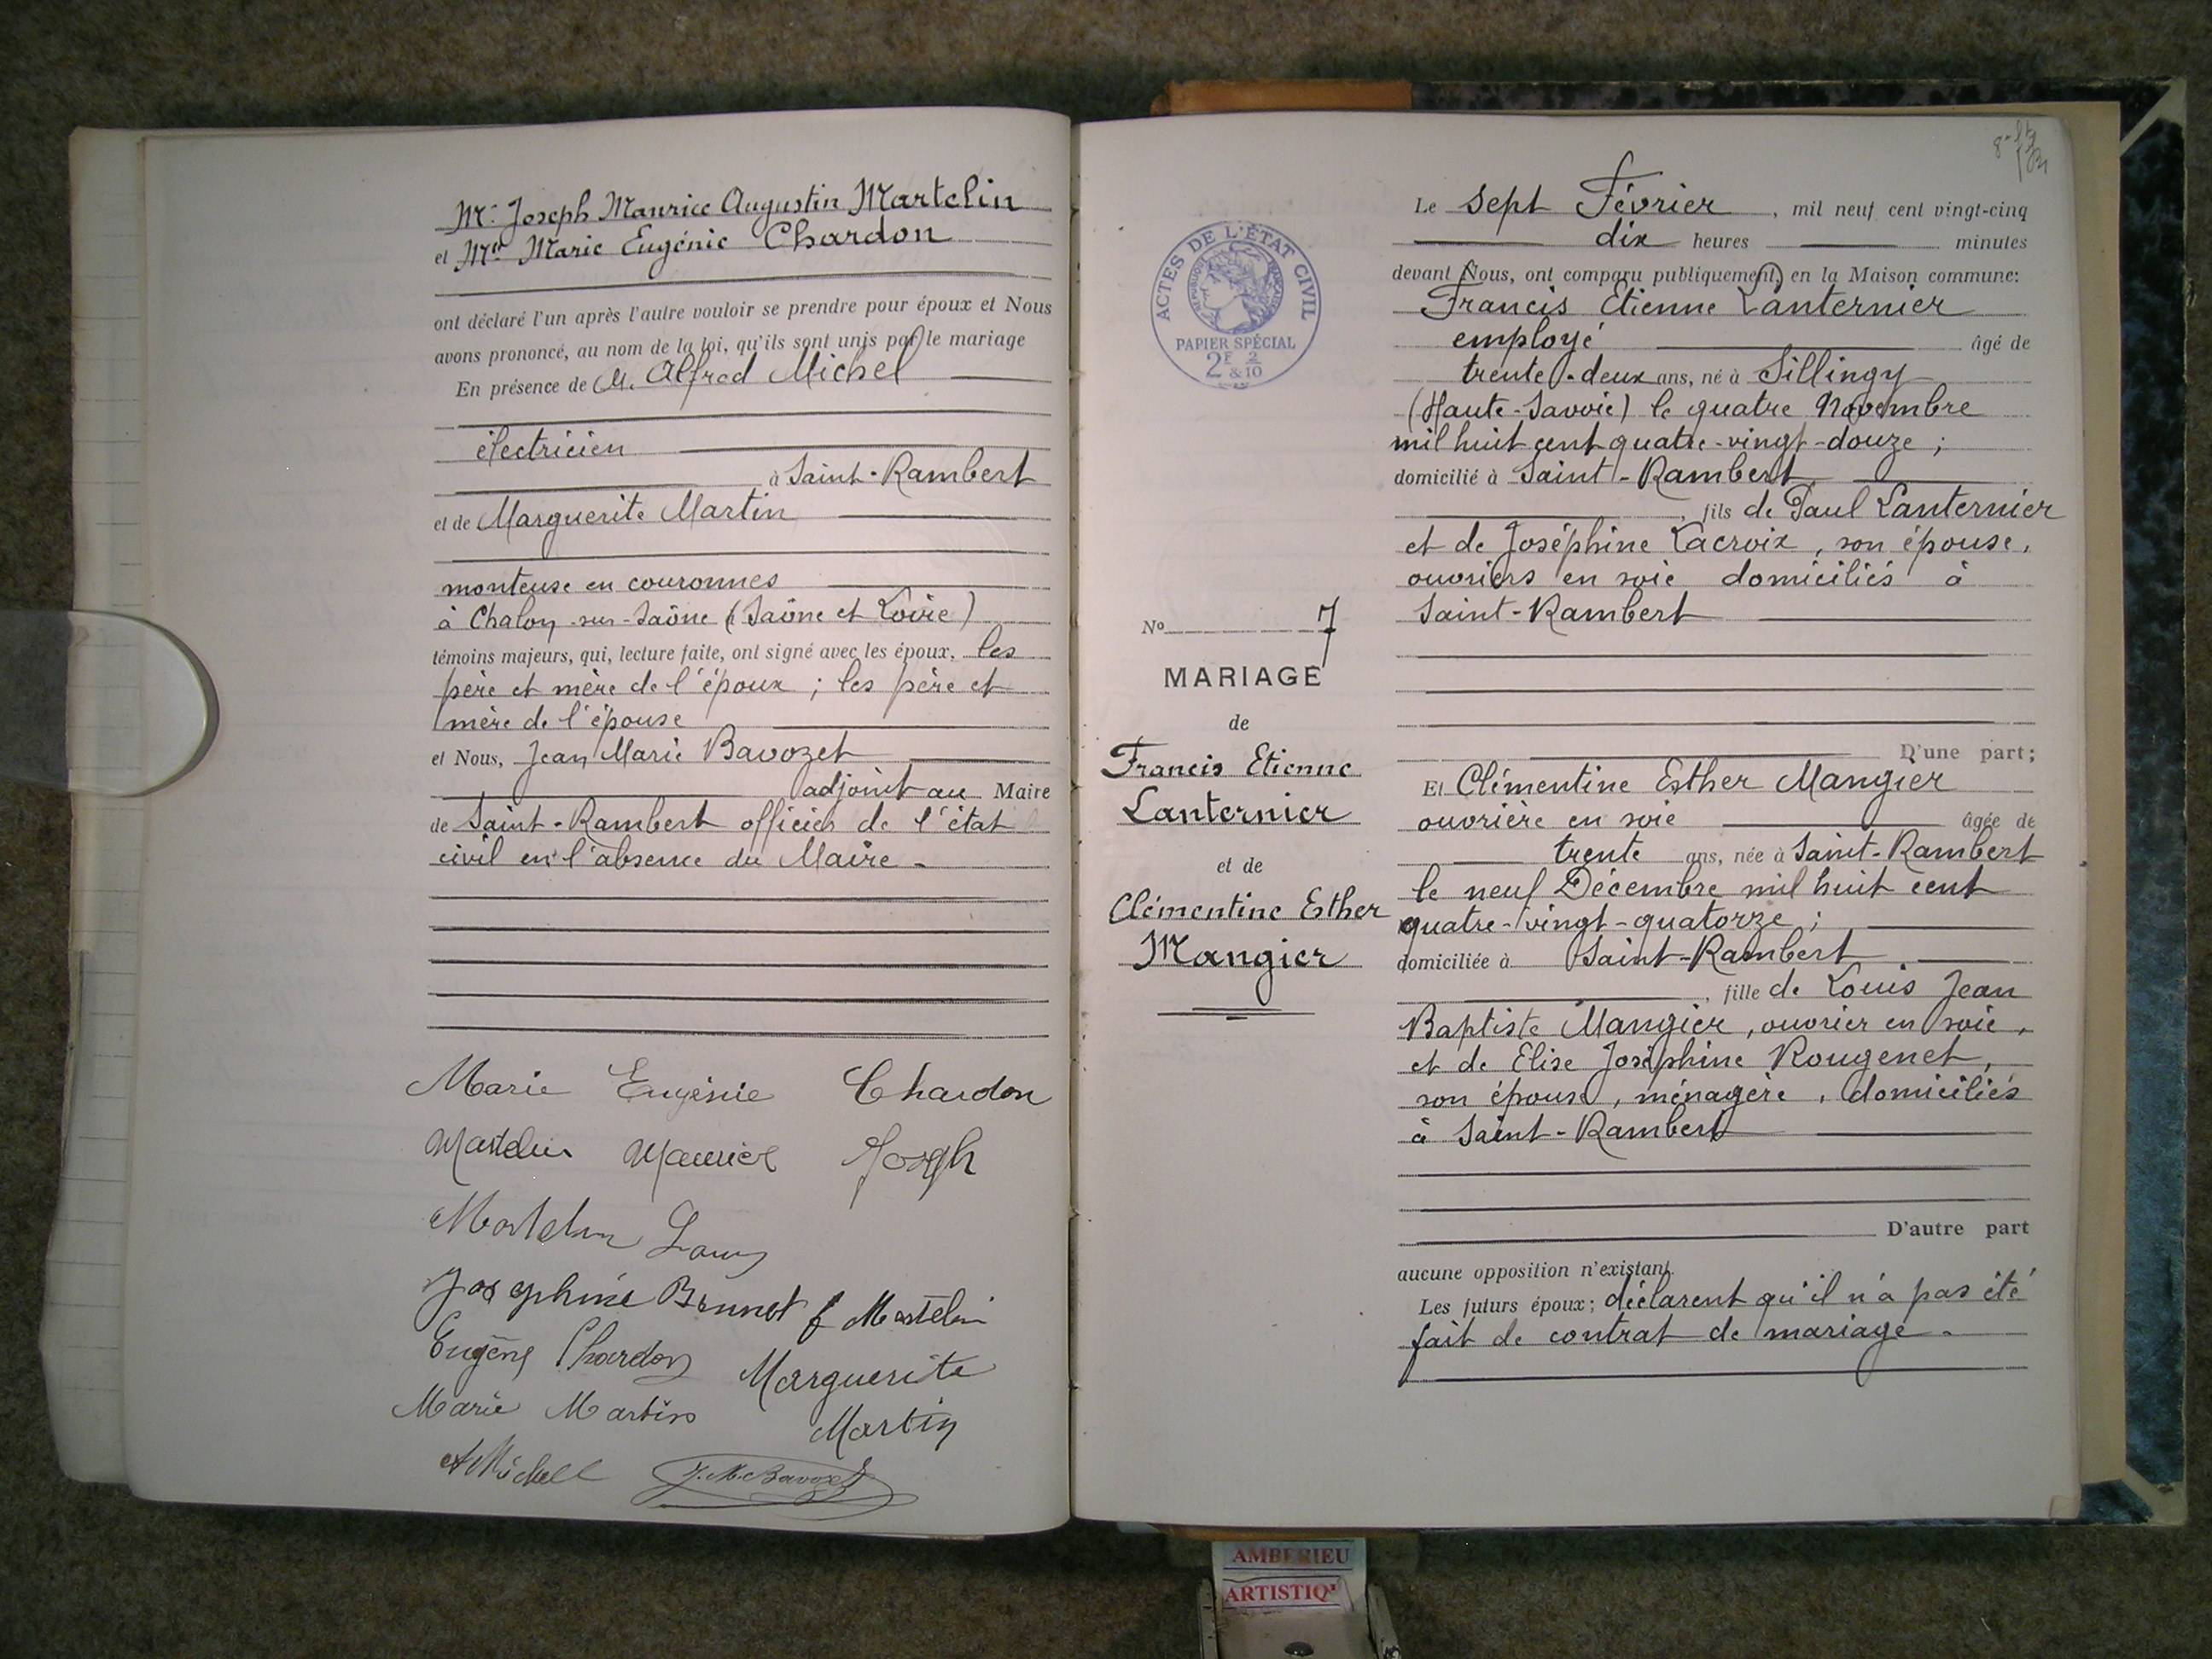 Mr Joseph Maurice Augustin Martelin
et Mlle Marie Eugénie Chardon
ont déclaré l'un après l'autre vouloir se prendre pour époux et Nous
avons prononcé, au nom de la loi, qu'ils sont unis par le mariage
En présence de M. Alfred Michel
électricien
à Saint-Rambert
et de Marguerite Martin
monteuse en couronnes
à Chalon-sur-Saône (Saône et Loire)
témoins majeurs, qui, lecture faite, ont signé avec les époux, les
père et mère de l'époux ; les père et
mère de l'épouse
et Nous, Jean Marie Bavozet
adjoint au Maire
de Saint-Rambert officier de l'état
civil en l'absence du Maire -
Marie Eugénie Chardon
Martelin Maurice Joseph
Martelin Louis
Josephine Brunet f Martelin
Eugène Chardon Marguerite
Marie Martin Martin
A Michel J. M. Bavozet
ACTES DE L'ÉTAT CIVIL
RÉPUBLIQUE FRANÇAISE
PAPIER SPÉCIAL
2F & 2/10
No 7
MARIAGE
de
Francis Etienne
Lanternier
et de
Clémentine Esther
Mangier
Le sept Février, mil neuf cent vingt-cinq
dix heures minutes
devant Nous, ont comparu publiquement, en la Maison commune:
Francis Etienne Lanternier
employé âgé de
trente-deux ans, né à Sillingy
(Haute-Savoie) le quatre Novembre
mil huit cent quatre-vingt-douze ;
domicilié à Saint-Rambert
, fils de Paul Lanternier
et de Joséphine Lacroix, son épouse,
ouvriers en soie domiciliés à
Saint-Rambert
D'une part;
Et Clémentine Esther Mangier
ouvrière en soie âgée de
trente ans, née à Saint-Rambert
le neuf Décembre mil huit cent
quatre-vingt-quatorze ;
domiciliée à Saint-Rambert
, fille de Louis Jean
Baptiste Mangier, ouvrier en soie,
et de Elise Joséphine Rougenet,
son épouse, ménagère, domiciliés
à Saint-Rambert
D'autre part
aucune opposition n'existant.
Les futurs époux; déclarent qu'il n'a pas été
fait de contrat de mariage -
AMBERIEU
ARTISTIQ